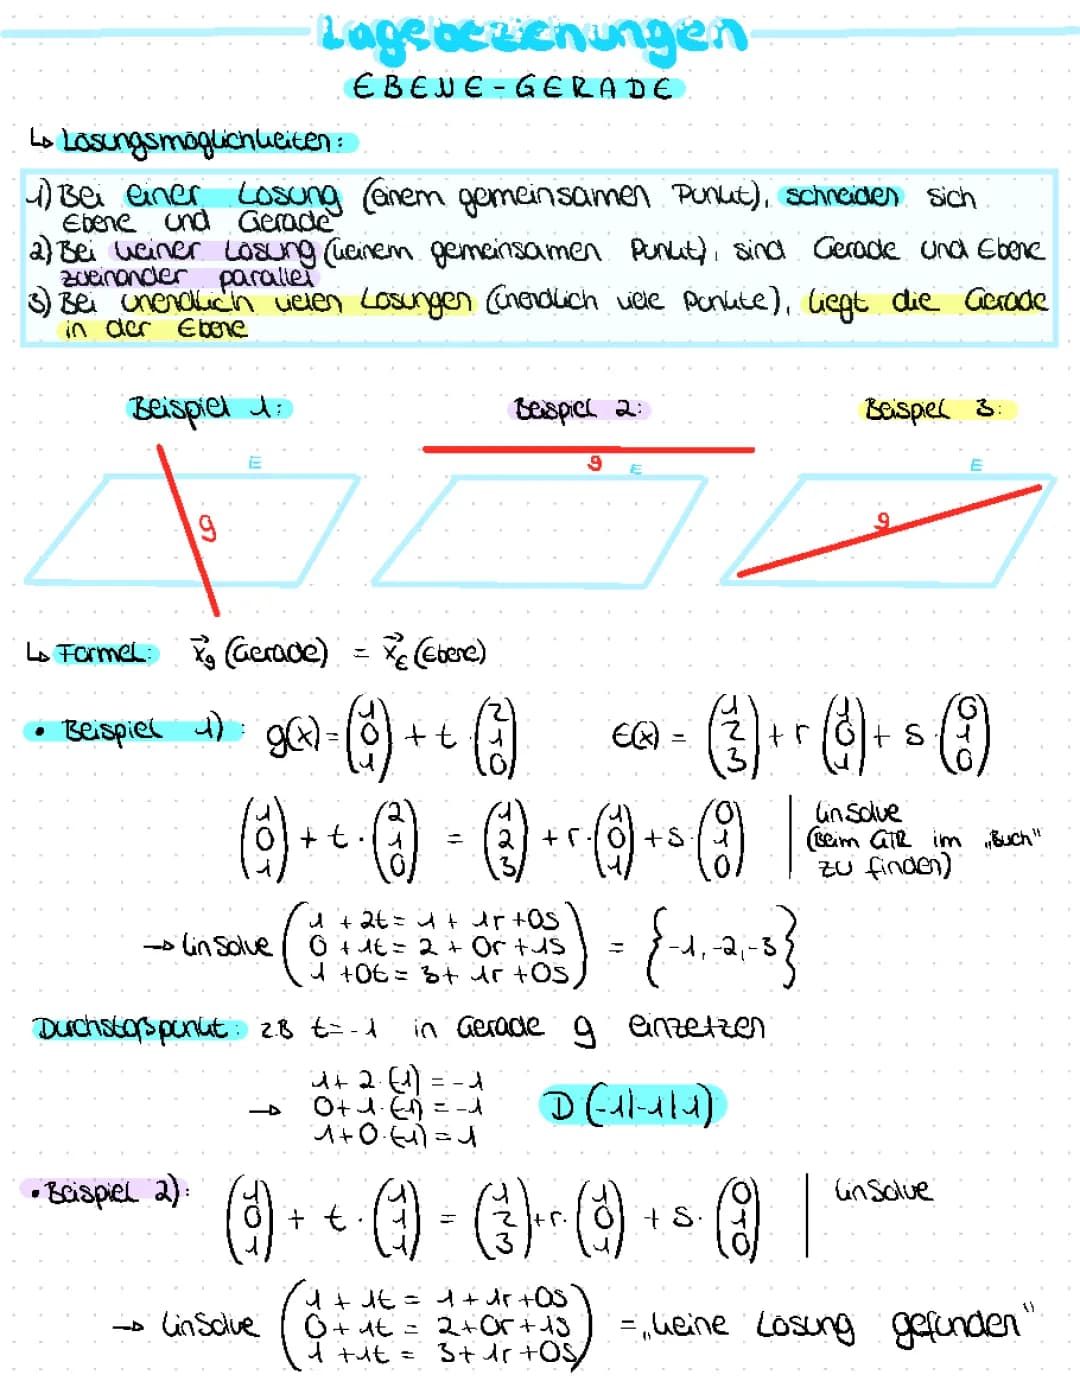 Lagebeziehungen
EBENE-GERADE
↳ Lösungsmöglichkeiten:
1) Bei einer Lösung (einem gemeinsamen Punkt), schneiden sich
Ebene und Gerade
2) Bei keiner Lösung (keinem gemeinsamen Punkt), sind Gerade und Ebene
zueinander parallel
3) Bei unendlich vielen Lösungen (unendlich viele Punkte), liegt die Gerade
in der Ebene
Beispiel 1: Beispiel 2: Beispiel 3:
E g E E
g g
↳ Formel: x⃗g (Gerade) = x⃗E (Ebene)
• Beispiel 1): g(x) = (1 0 1) + t (2 1 0) E(x) = (1 2 3) + r (1 0 1) + s (0 1 0)
(1 0 1) + t · (2 1 0) = (1 2 3) + r · (1 0 1) + s · (0 1 0) | linSolve
(Beim GTR im „Buch"
zu finden)
1 + 2t = 1 + 1r + 0s
→ linSolve ( 0 + 1t = 2 + 0r + 1s ) = {-1, -2, -3}
1 + 0t = 3 + 1r + 0s
Durchstoßpunkt: z.B t = -1 in Gerade g einzetzen
1 + 2·(-1) = -1
→ 0 + 1·(-1) = -1 D (-1|-1|1)
1 + 0·(-1) = 1
• Beispiel 2): (1 0 1) + t · (1 1 1) = (1 2 3) + r · (1 0 1) + s · (0 1 0) | linSolve
1 + 1t = 1 + 1r + 0s
→ linSolve ( 0 + 1t = 2 + 0r + 1s ) = „keine Lösung gefunden"
1 + 1t = 3 + 1r + 0s